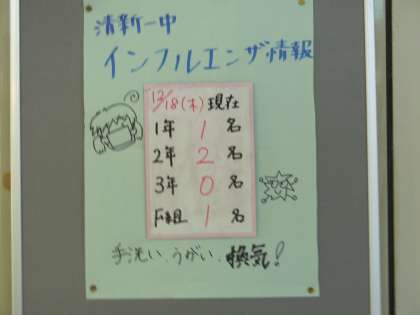 清新一中
インフルエンザ情報
12/18(木)現在
1年 1 名
2年 2 名
3年 0 名
F組 1 名
手洗い、うがい、換気!